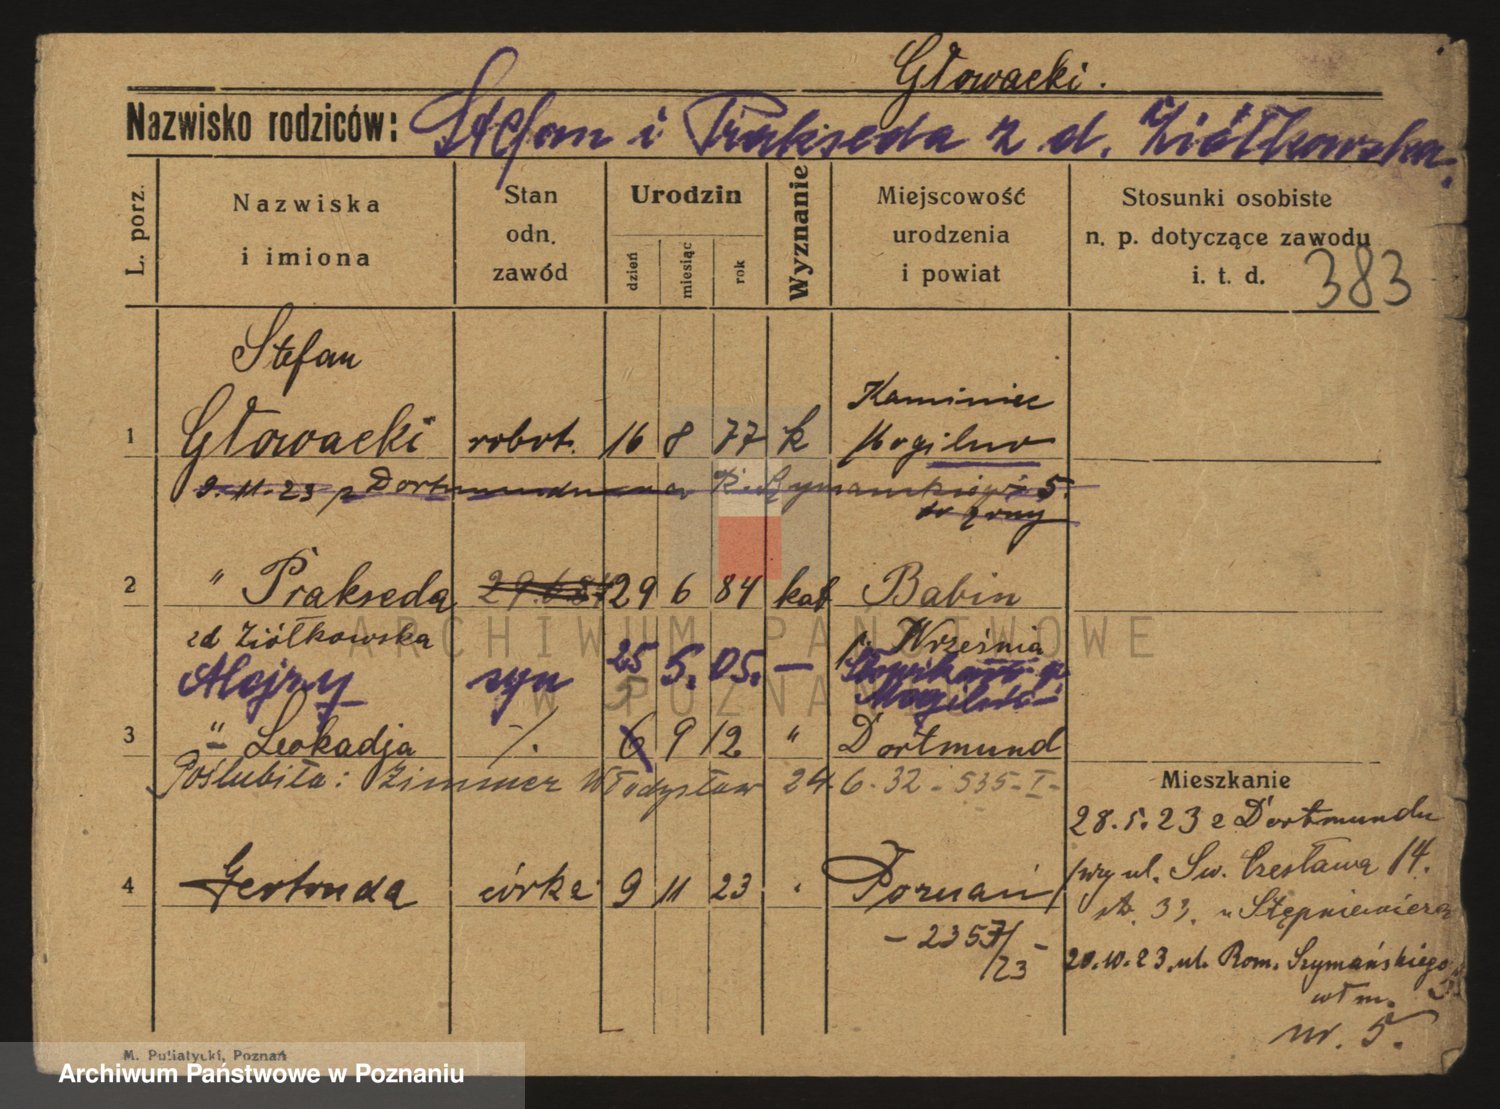 Głowacki.
Nazwisko rodziców: Stefan i Prakseda z d. Ziółkowska.
L. porz.
Nazwiska i imiona
Stan odn. zawód
Urodzin
dzień
miesiąc
rok
Wyznanie
Miejscowość urodzenia i powiat
Stosunki osobiste n. p. dotyczące zawodu i. t. d.
383
Stefan
Kaminiec
1 Głowacki robot. 16 8 77 k Mogilno
9.11.23 z Dortmundu R. Szymańskiego 5.
2 " Prakseda 29.6.84 29 6 84 kat Babin
zd Ziółkowska p. Września
Alojzy syn 25 5. 05. —
Mogilno
3 " Leokadja -/. 6 9 12 " Dortmund
Poślubiła: Zimmer Władysław 24.6.32 - 535-I-
Mieszkanie
28.5.23 z Dortmundu
przy ul. Św. Czesława 14.
4 Gertruda córka 9 11 23 Poznań
33. u Stępniewicza
- 2357/23 -
20.10.23. ul. Rom. Szymańskiego
włm.
nr. 5.
M. Putiatycki, Poznań
ARCHIWUM PAŃSTWOWE
W POZNANIU
Archiwum Państwowe w Poznaniu